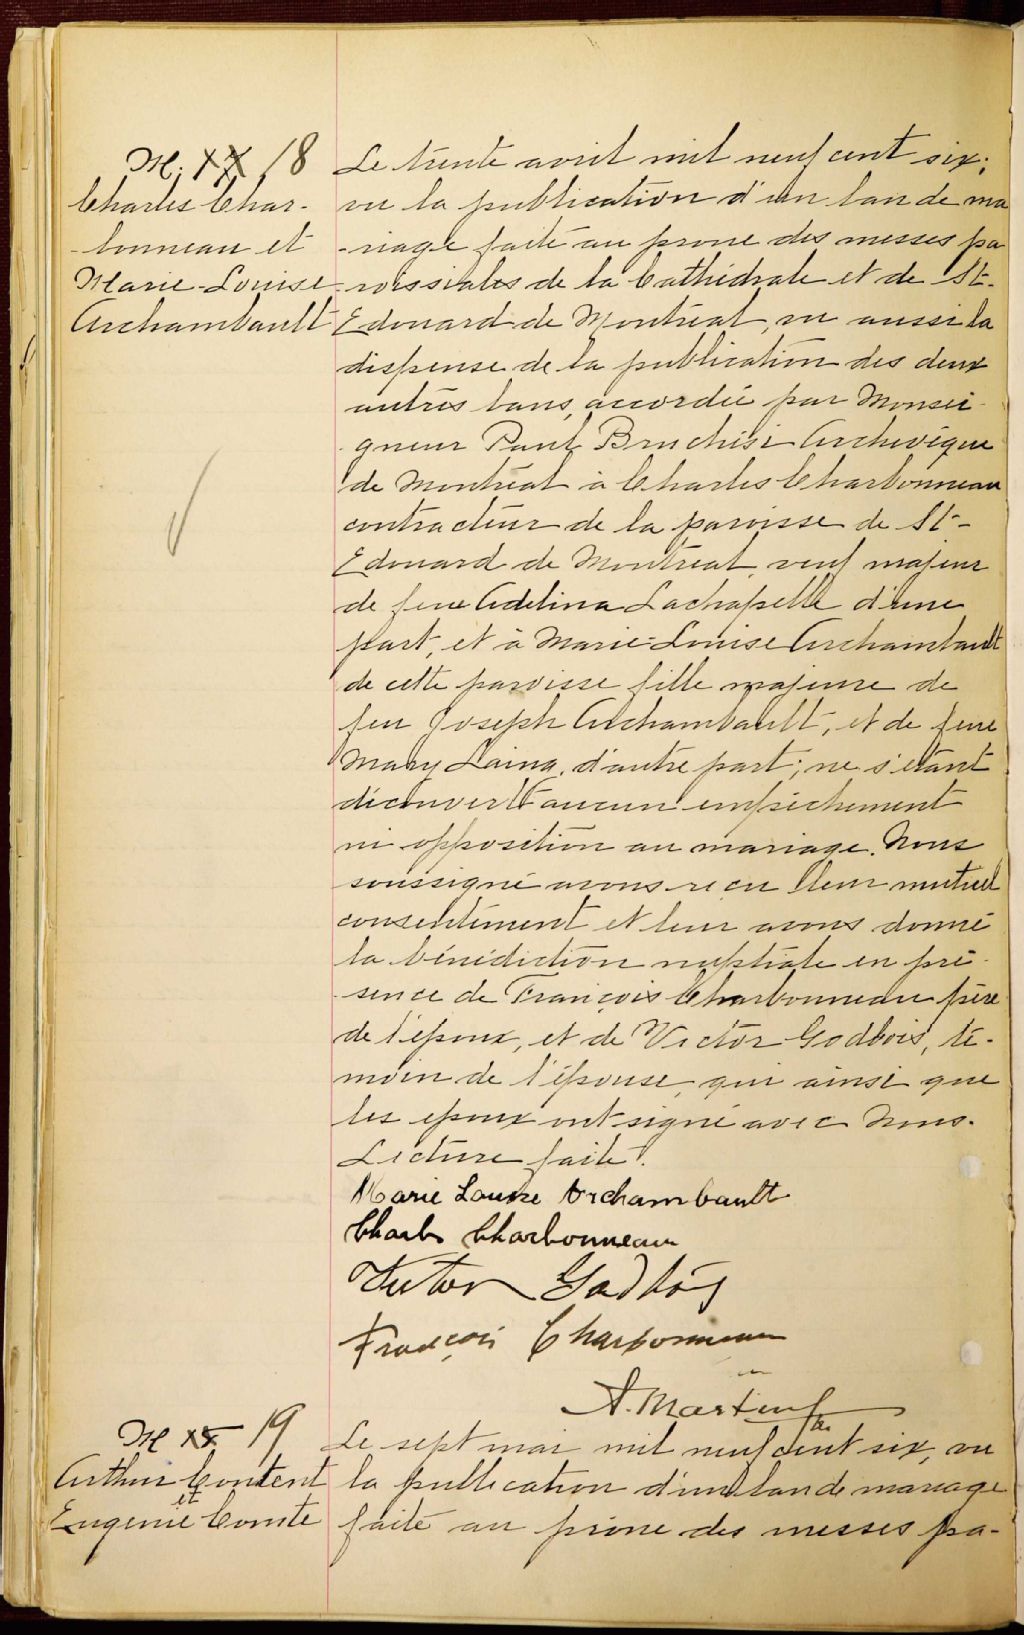 M. XX 18
Charles Char-
-bonneau et
Marie-Louise
Archambault
Le trente avril mil neuf cent six;
vu la publication d'un ban de ma
-riage faite au prone des messes pa
-roissiales de la Cathédrale et de St-
Edouard de Montréal, vu aussi la
dispense de la publication des deux
autres bans, accordée par Monsei-
-gneur Paul Bruchési Archevêque
de Montréal à Charles Charbonneau
contracteur de la paroisse de St-
Edouard de Montréal, veuf majeur
de feue Adelina Lachapelle d'une
part, et à Marie-Louise Archambault
de cette paroisse fille majeure de
feu Joseph Archambault, et de feue
Mary Laing, d'autre part; ne s'étant
découvert aucun empêchement
ni opposition au mariage. Nous
soussigné avons reçu leur mutuel
consentement et leur avons donné
la bénédiction nuptiale en pré-
-sence de François Charbonneau père
de l'époux, et de Victor Godbois, té-
moin de l'épouse, qui ainsi que
les époux ont signé avec Nous.
Lecture faite.
Marie Louise Archambault
Charles Charbonneau
Victor Godbois
François Charbonneau
A. Martin
M XX 19
Arthur Content
et
Eugenie Comte
Le sept mai mil neuf cent six, vu
la publication d'un ban de mariage
faite au prône des messes pa-